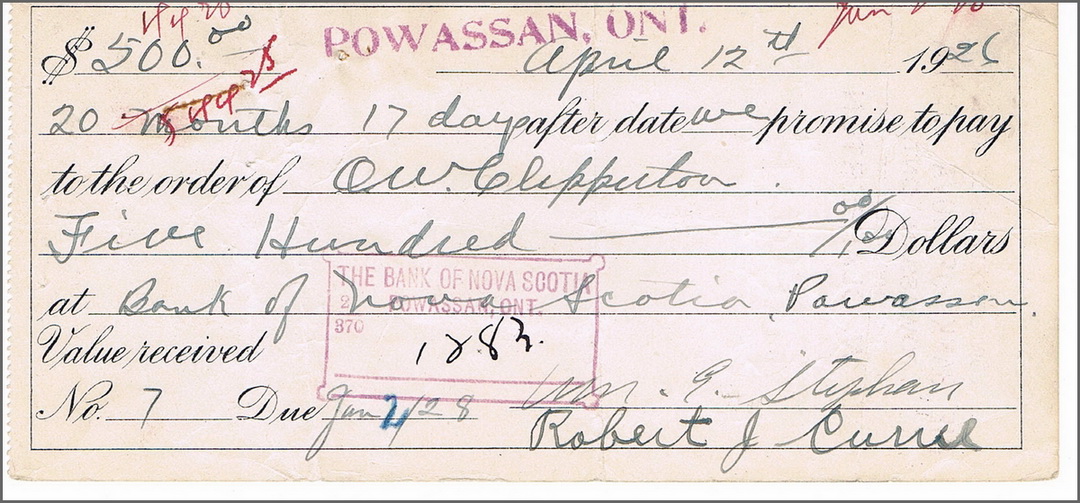 POWASSAN, ONT.
$ 500.00 April 12th 1926
20 months 17 days after date we promise to pay
to the order of O.W. Clapperton
Five Hundred 00/100 Dollars
at Bank of Nova Scotia Powassan.
THE BANK OF NOVA SCOTIA
POWASSAN, ONT.
370
1283.
Value received
No. 7 Due Jan 2/28 Wm. G. Stephan
Robert J Currie